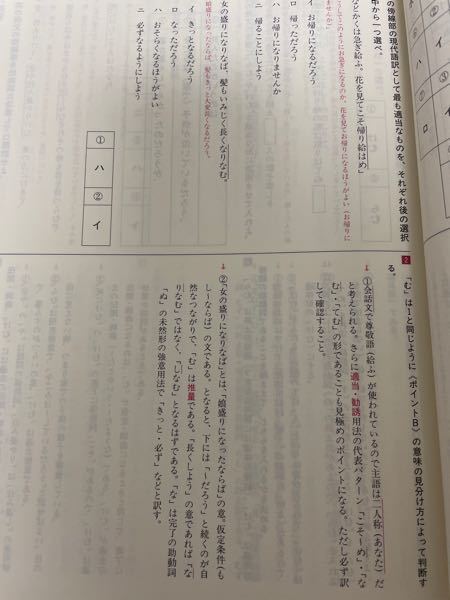 の傍線部の現代語訳として最も適当なものを、それぞれ後の選択
中から一つ選べ。
などかくは急ぎ給ふ。花を見てこそ帰り給はめ」
イ お帰りになるだろう
ロ 帰っただろう
ハ お帰りになりませんか
ニ 帰ることにしよう
女の盛りになりなば、髪もいみじく長くなりなむ。
イ きっとなるだろう
ロ なっただろう
ハ おそらくなるほうがよい
ニ 必ずなるようにしよう
①
ハ
②
イ
2 「む」は1と同じように〈ポイントB〉の意味の見分け方によって判断す
る。
↓ ①会話文で尊敬語（給ふ）が使われているので主語は二人称（あなた）だ
と考えられる。さらに適当・勧誘用法の代表パターン「こそ〜め」・「な
む」・「てむ」の形であることも見極めのポイントになる。ただし必ず訳
して確認すること。
↓ ②「女の盛りになりなば」とは、「娘盛りになったならば」の意。仮定条件（も
し〜ならば）の文である。となると、下には「〜だろう」と続くのが自
然なつながりで、「む」は推量である。「長くしよう」の意であれば「な
りなむ」ではなく、「しなむ」となるはずである。「な」は完了の助動詞
「ぬ」の未然形の強意用法で「きっと・必ず」などと訳す。